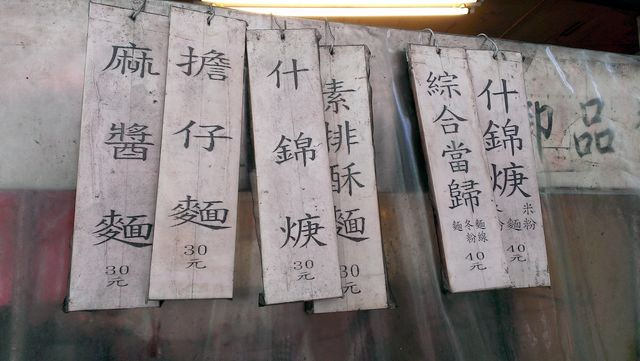 麻醬麵
30元
擔仔麵
30元
什錦焿
30元
素排酥麵
30
綜合當歸
麵冬麵
粉線
40元
什錦焿
米粉
麵
40元
品